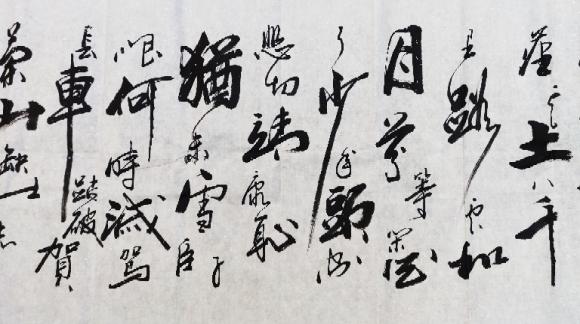 塵與土八千
里路雲和
月莫等閑白
了少年頭空
悲切靖康恥
猶未雪臣子
恨何時滅駕
長車踏破賀
蘭山缺壯志